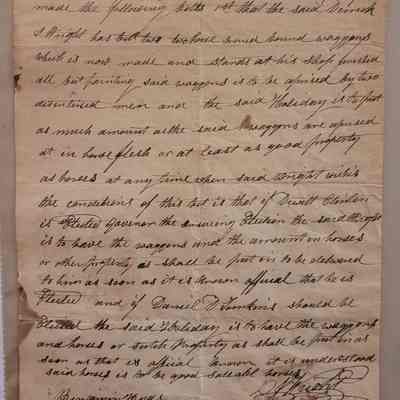 made the following betts 1st that the said Derrick
S Wright has bett two two horse iron bound waggons
which is now made and stands at his shop finished
all but painting said waggons is to be aprised by two
disintrested men and the said Haliday is to put
as much amount as the said waggons are aprised
at in horse flesh or at least as good property
as horses at any time when said wright wishes
the conditions of this bet is that if Dewitt Clinton
is Elected Governor the ensuring Election the said Wright
is to have the waggons and the amount in horses
or other property as shall be put on to be delivered
to him as soon as it is known official that he is
Elected and if Daniel D Tomkins should be
Elected the said Haliday is to have the waggons
and horses or such Property as shall be put in as
soon as that is official known it is understood
said horses is to be good saleable horses
Benjamin
Wright